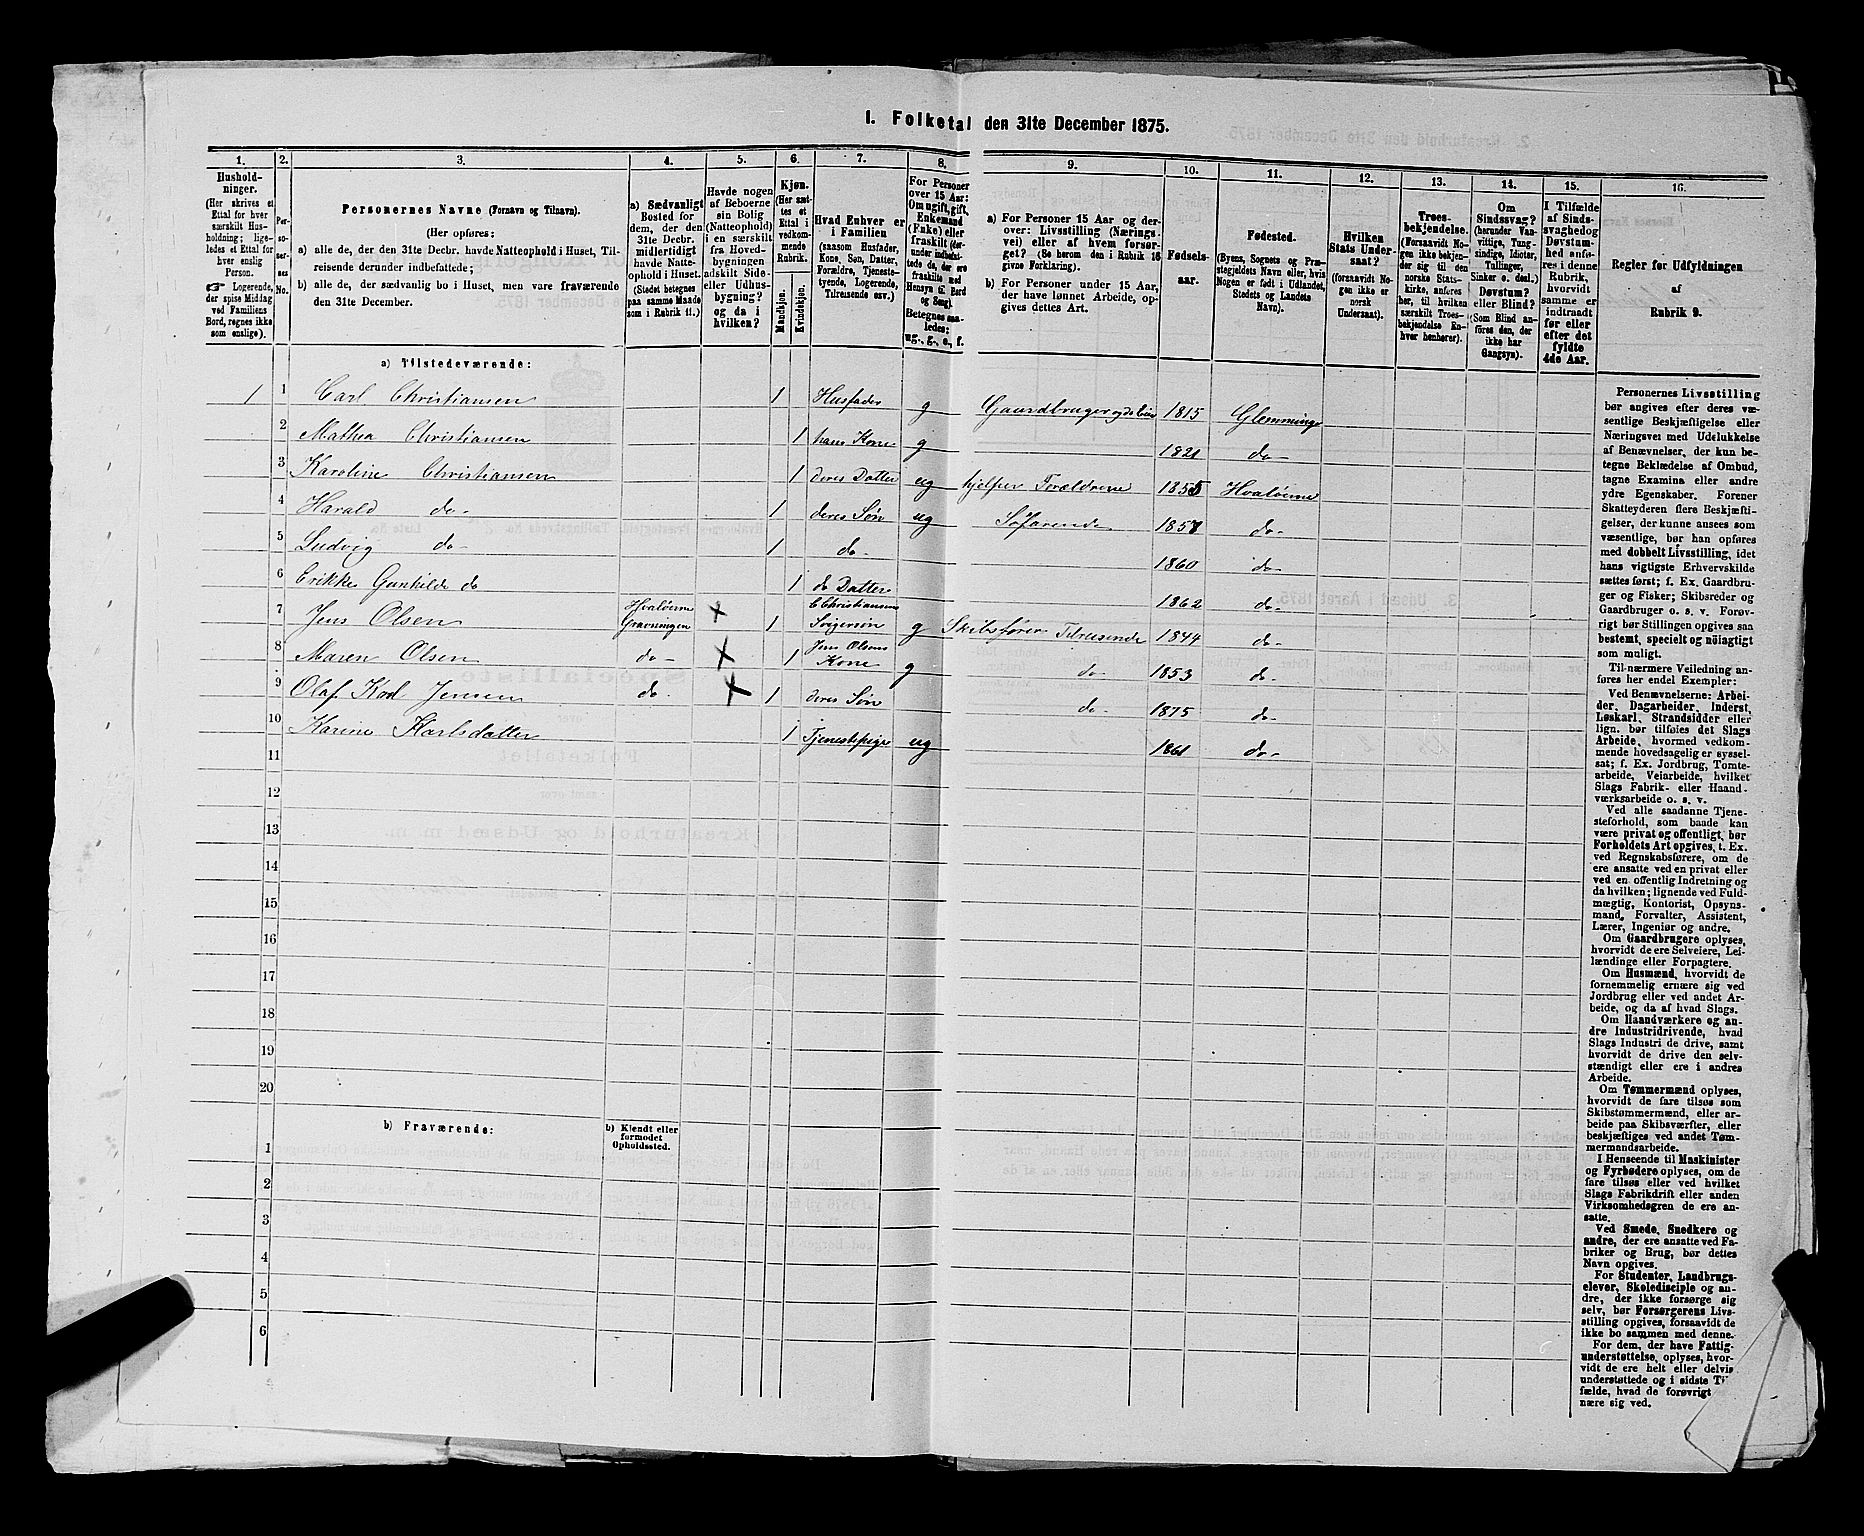 1. Folketal den 31te December 1875.
1. 2. 3. 4. 5. 6. 7. 8. 9. 10. 11. 12. 13. 14. 15. 16.
Hushold-
ninger.
(Her skrives et
Ettal for hver
særskilt Hus-
holdning; lige-
ledes et Ettal
for hver enslig
Person.
☛ Logerende,
der spise Middag
ved Familiens
Bord, regnes ikke
som enslige).
Per-
so-
ner-
nes
No.
Personernes Navne (Fornavn og Tilnavn).
(Her opføres:
a) alle de, der den 31te Decbr. havde Natteophold i Huset, Til-
reisende derunder indbefattede;
b) alle de, der sædvanlig bo i Huset, men vare fraværende
den 31te December.
a) Sædvanligt
Bosted for
dem, der den
31te Decbr.
midlertidigt
havde Natte-
ophold i Huset.
(Stedet betegnes
paa samme Maade
som i Rubrik 11.)
Havde nogen
af Beboerne
sin Bolig
(Natteophold)
i en særskilt
fra Hoved-
bygningen
adskilt Side-
eller Udhus-
bygning?
og da i
hvilken?
Kjøn.
(Her sæt-
tes et
Ettal i
vedkom-
mende
Rubrik.
Mandkjøn.
Kvindekjøn.
Hvad Enhver er
i Familien
(saasom Husfader,
Kone, Søn, Datter,
Forældre, Tjeneste-
tyende, Logerende,
Tilreisende osv.)
For Personer
over 15 Aar:
Om ugift, gift,
Enkemand
(Enke) eller
fraskilt
Betegnes saa-
ledes:
ug., g., e., f.
a) For Personer 15 Aar og der-
over: Livsstilling (Nærings-
vei) eller af hvem forsør-
get? (Se herom den i Rubrik 16
givne Forklaring).
b) For Personer under 15 Aar,
der have lønnet Arbeide, op-
gives dettes Art.
Fødsels-
aar.
Fødested.
(Byens, Sognets og Præ-
stegjeldets Navn eller, hvis
Nogen er født i Udlandet,
Stedets og Landets
Navn).
Hvilken
Stats Under-
saat?
(forsaavidt No-
gen ikke er
norsk
Undersaat).
Troes-
bekjendelse.
(Forsaavidt No-
gen ikke bekjen-
der sig til den
norske Stats-
kirke, anføres
her, til hvilken
særskilt Troes-
bekjendelse En-
hver henhører).
Om
Sindssvag?
(herunder Van-
vittige, Tung-
sindige, Idioter,
Tullinger,
Sinker o. desl.)
Døvstum?
eller Blind?
(Som Blind an-
føres den, der
ikke har
Gangsyn).
I Tilfælde
af Sinds-
svaghed og
Døvstum-
hed anfø-
res i denne
Rubrik,
hvorvidt
samme er
indtraadt
før eller
efter det
fyldte
4de Aar.
Regler for Udfyldningen
af
Rubrik 9.
a) Tilstedeværende:
1 1 Carl Christiansen 1 Husfader g Gaardbruger 1815 Glemminge
2 Mathea Christiansen 1 hans Kone g 1821 do-
3 Karoline Christiansen 1 deres Datter ug hjelper Forældrene 1855 Hvaløerne
4 Harald do- 1 deres Søn ug Søfarende 1857 do-
5 Ludvig do 1 do- 1860 do-
6 Erikke Gunhilde do 1 do Datter 1862 do-
7 Jens Olsen Hvaløerne Gravningen X 1 C Christiansens Svigersøn g Skibsfører Tilreisende 1844 do-
8 Maren Olsen do- X 1 Jens Olsens Kone g do- 1853 do-
9 Olaf Karl Jensen do- X 1 deres Søn do- 1875 do-
10 Karine Karlsdatter 1 Tjenestepige ug 1861 do-
11
12
13
14
15
16
17
18
19
20
b) Fraværende: b) Kjendt eller
formodet
Opholdssted.
1
2
3
4
5
6
Personernes Livsstilling
bør angives efter deres væ-
sentlige Beskjæftigelse eller
Næringsvei med Udelukkelse
af Benævnelser, der kun be-
tegne Beklædelse af Ombud,
tagne Examina eller andre
ydre Egenskaber. Forener
Skatteyderen flere Beskjæfti-
gelser, der kunne ansees som
væsentlige, bør han opføres
med dobbelt Livsstilling, idet
hans vigtigste Erhvervskilde
sættes først; f. Ex. Gaardbru-
ger og Fisker; Skibsreder og
Gaardbruger o. s. v. Forøv-
rigt bør Stillingen opgives saa
bestemt, specielt og nöiagtigt
som muligt.
Til nærmere Veiledning an-
føres her endel Exempler:
Ved Benævnelserne: Arbei-
der, Dagarbeider, Inderst,
Løskarl, Strandsidder eller
lign. bør tilføies det Slags
Arbeide, hvormed vedkom-
mende hovedsagelig er syssel-
sat; f. Ex. Jordbrug, Tomte-
arbeide, Veiarbeide, hvilket
Slags Fabrik- eller Haand-
værksarbeide o. s. v.
Ved alle saadanne Tjene-
steforhold, som baade kan
være privat og offentligt, bør
Forholdets Art opgives, t. Ex.
ved Regnskabsførere, om de
ere ansatte ved en privat eller
ved en offentlig Indretning og
da hvilken; lignende ved Fuld-
mægtig, Kontorist, Opsyns-
mand, Forvalter, Assistent,
Lærer, Ingeniør og andre.
Om Gaardbrugere oplyses,
hvorvidt de ere Selveiere, Lei-
lændinge eller Forpagtere.
Om Husmænd, hvorvidt de
fornemmelig ernære sig ved
Jordbrug eller ved andet Ar-
beide, og da af hvad Slags.
Om Haandværkere og an-
dre Industridrivende, hvad
Slags Industri de drive, samt
hvorvidt de drive den selv-
stændigt eller ere i andres
Arbeide.
Om Tømmermænd oplyses,
hvorvidt de fare tilsøs som
Skibstømmermænd, eller ar-
beide paa Skibsværfter, eller
beskjæftiges ved andet Tøm-
mermandsarbeide.
I Henseende til Maskinister
og Fyrbødere oplyses, om de
fare tilsøs eller ved hvilket
Slags Fabrikdrift eller anden
Virksomhedsgren de ere an-
satte.
Ved Smede, Snedkere og
andre, der ere ansatte ved Fa-
briker og Brug, bør dettes
Navn opgives.
For Studenter, Landbrugs-
elever, Skoledisciple og an-
dre, der ikke forsørge sig
selv, bør Forsørgerens Livs-
stilling opgives, forsaavidt de
ikke bo sammen med denne.
For dem, der have Fattig-
understøttelse, oplyses, hvor-
vidt de ere helt eller delvis
understøttede og i sidste Til
fælde, hvad de forøvrigt
nære sig ved.